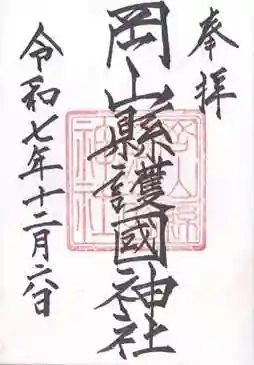 奉拝
岡山縣護國神社
令和七年十二月六日